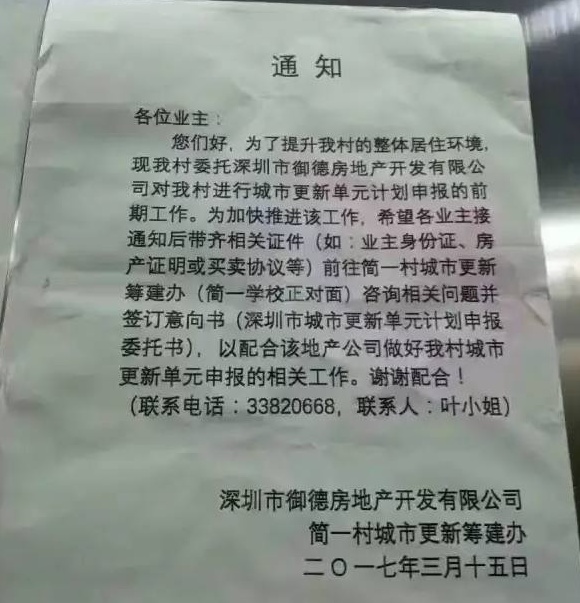 通知
各位业主：
您们好，为了提升我村的整体居住环境，
现我村委托深圳市御德房地产开发有限公
司对我村进行城市更新单元计划申报的前
期工作。为加快推进该工作，希望各业主接
通知后带齐相关证件（如：业主身份证、房
产证明或买卖协议等）前往简一村城市更新
筹建办（简一学校正对面）咨询相关问题并
签订意向书（深圳市城市更新单元计划申报
委托书），以配合该地产公司做好我村城市
更新单元申报的相关工作。谢谢配合！
（联系电话：33820668，联系人：叶小姐）
深圳市御德房地产开发有限公司
简一村城市更新筹建办
二〇一七年三月十五日